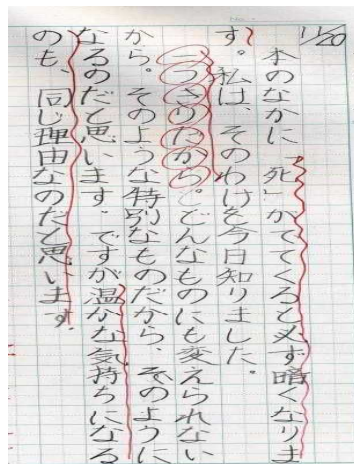 11/20
本のなかに「死」がでてくると必ず暗くなりま
す。私は、そのわけを今日知りました。
一つきりだから。どんなものにも変えられない
から。そのような特別なものだから、そのように
なるのだと思います。ですが温かな気持ちになる
のも、同じ理由なのだと思います。